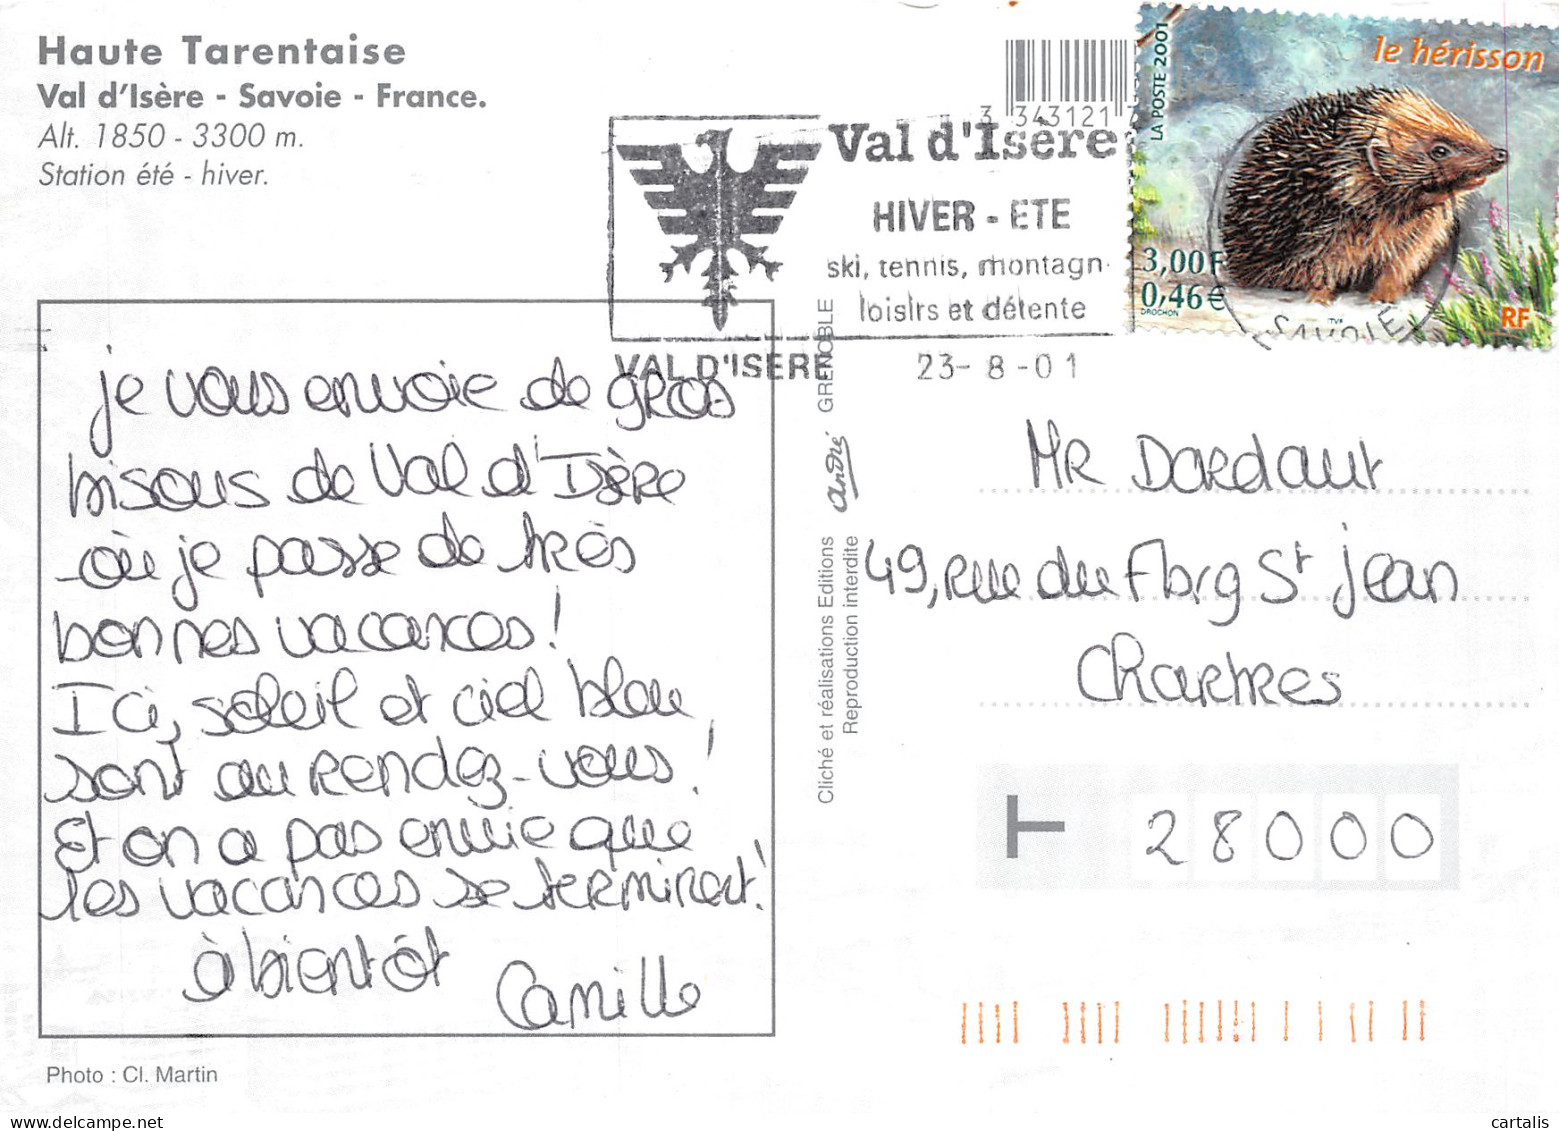 Haute Tarentaise
Val d'Isère - Savoie - France.
Alt. 1850 - 3300 m.
Station été - hiver.
3 343121 7
LA POSTE 2001
le hérisson
3,00F
0,46€
DROCHON
TVP
RF
SAVOIE
Val d'Isère
HIVER - ETE
ski, tennis, montagn
loisirs et détente
VAL D'ISERE
23- 8 -01
je vous envoie de gros
bisous de Val d'Isère
où je passe de très
bonnes vacances!
Ici, soleil et ciel bleu,
sont au rendez-vous!
Et on a pas envie que
les vacances se terminent!
à bientôt
Camille
Photo : Cl. Martin
Cliché et réalisations Editions André GRENOBLE
Reproduction interdite
MR Dardaut
49, rue du Fbrg St Jean
Chartres
28000
cartalis